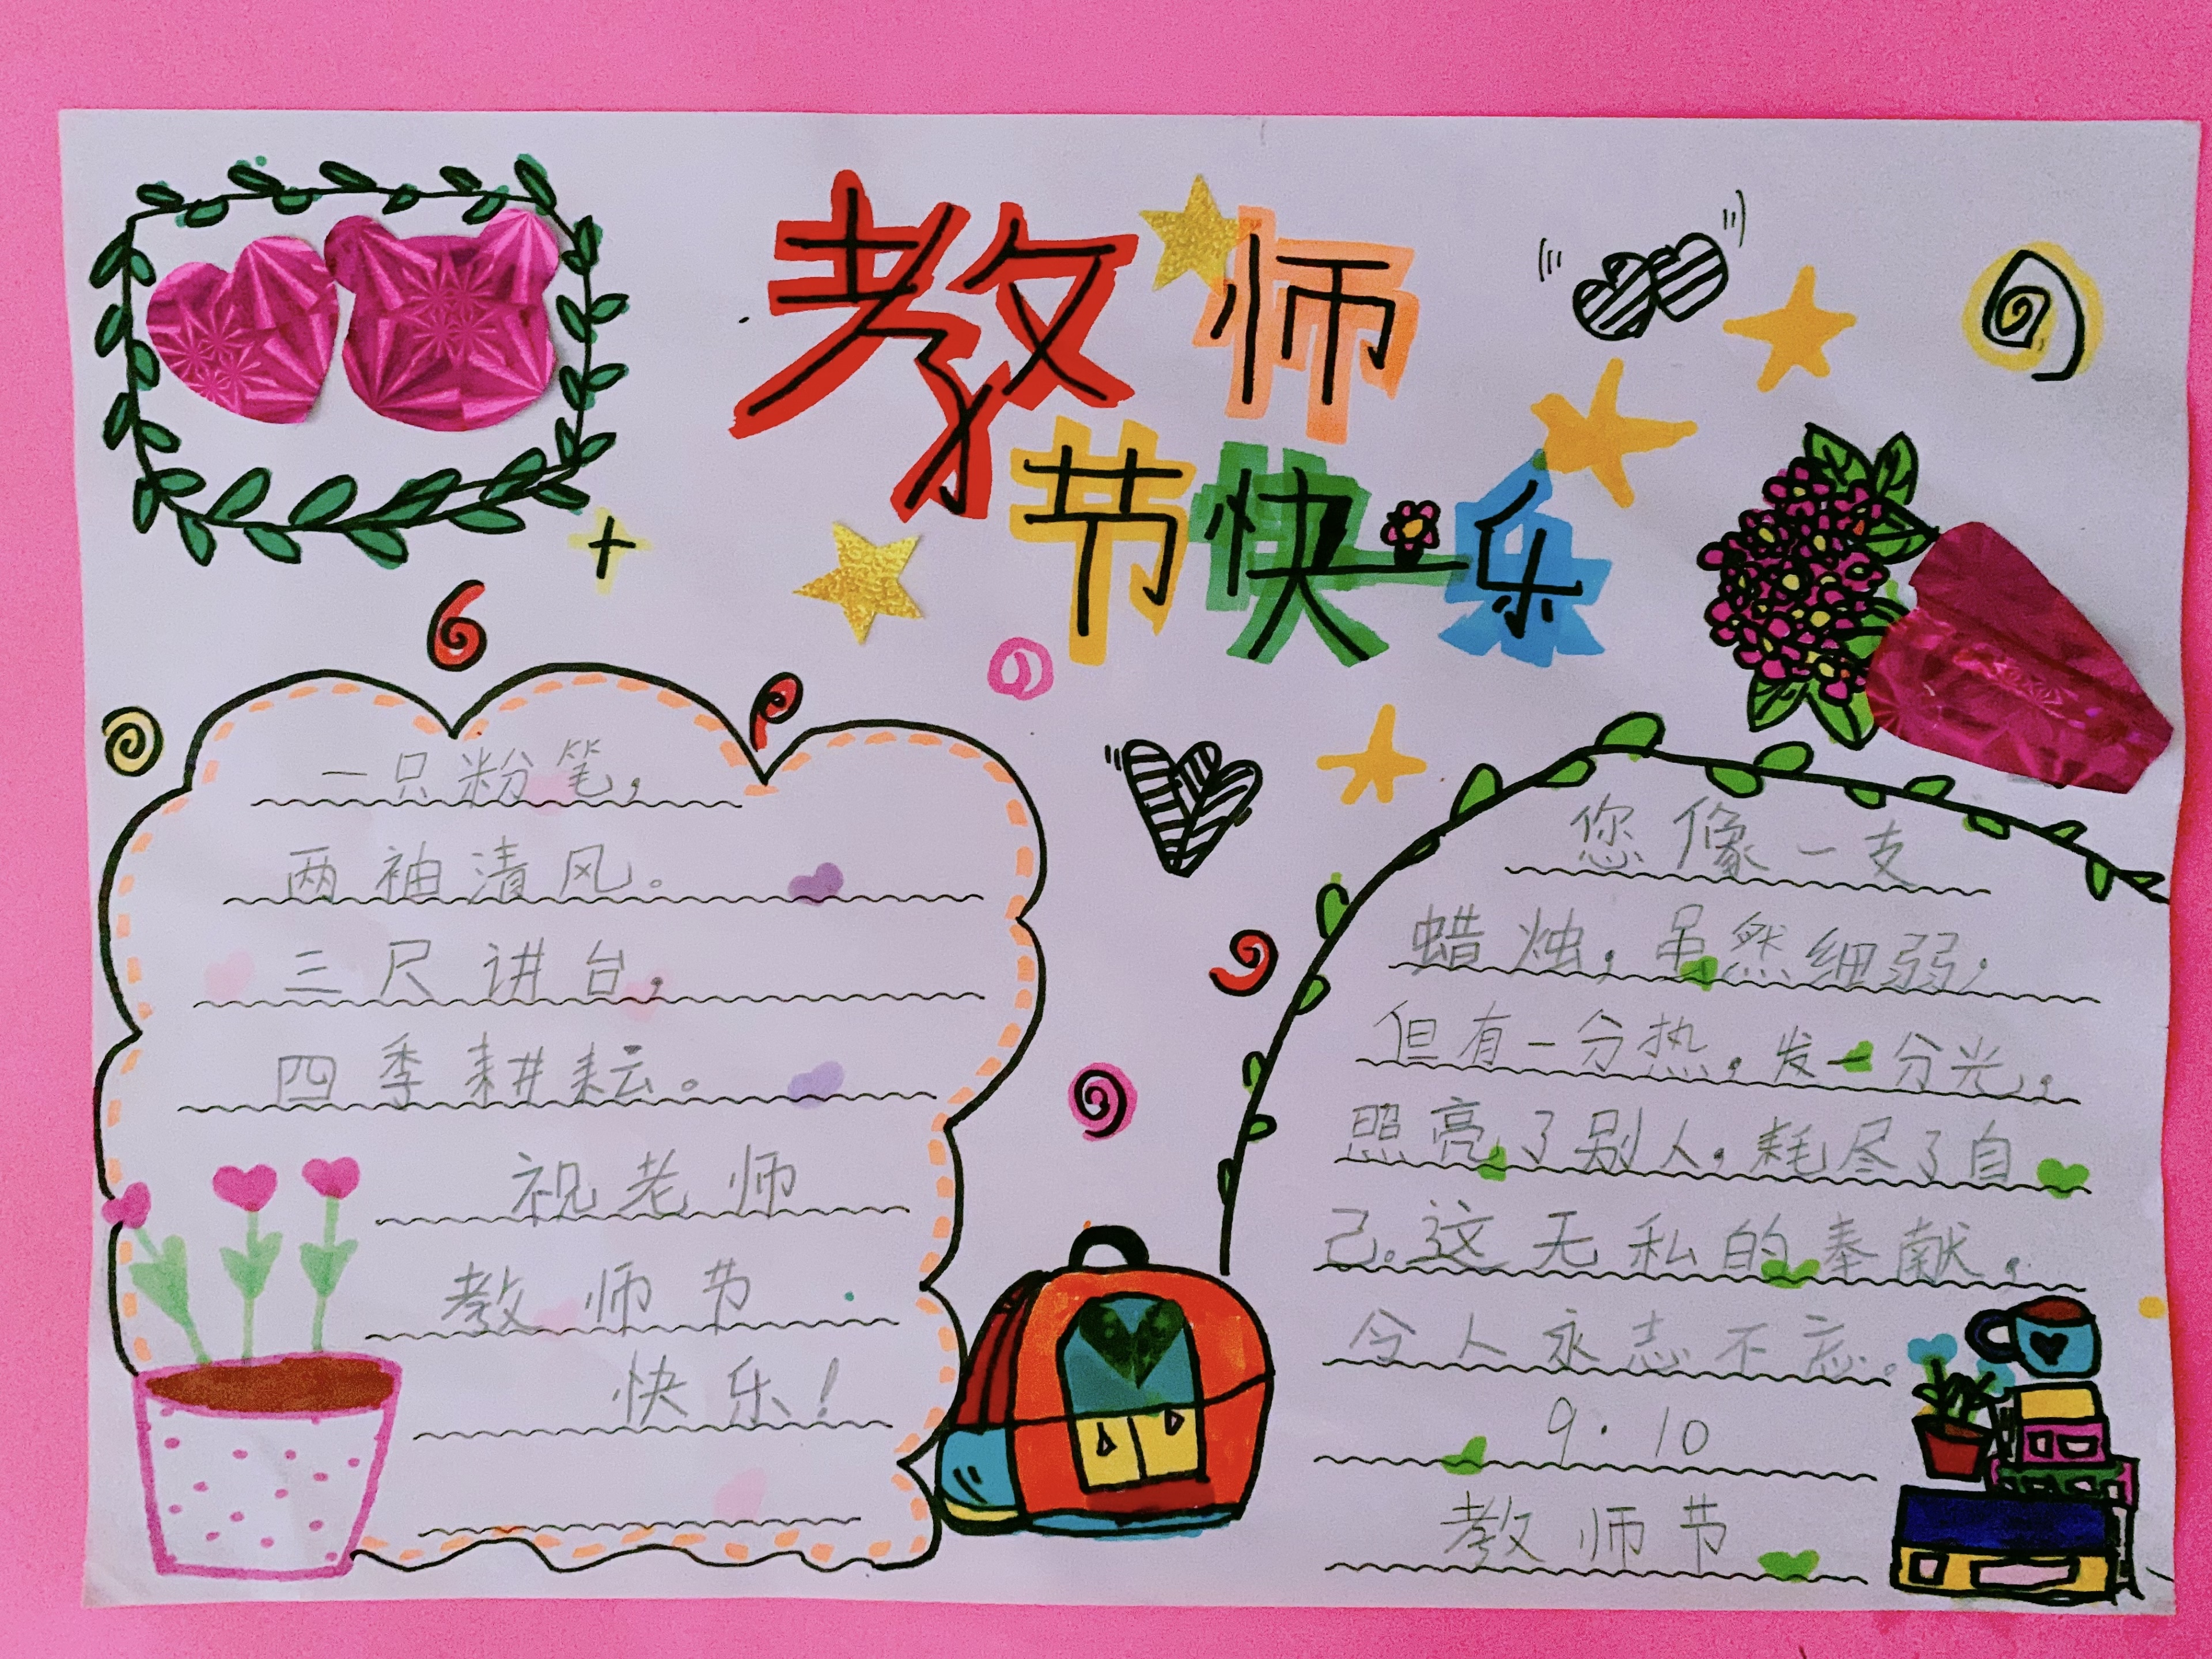 教师
节快乐
一只粉笔，
两袖清风。
三尺讲台，
四季耕耘。
祝老师
教师节
快乐！
您像一支
蜡烛，虽然细弱，
但有一分热，发一分光，
照亮了别人，耗尽了自
己。这无私的奉献，
令人永志不忘。
9·10
教师节